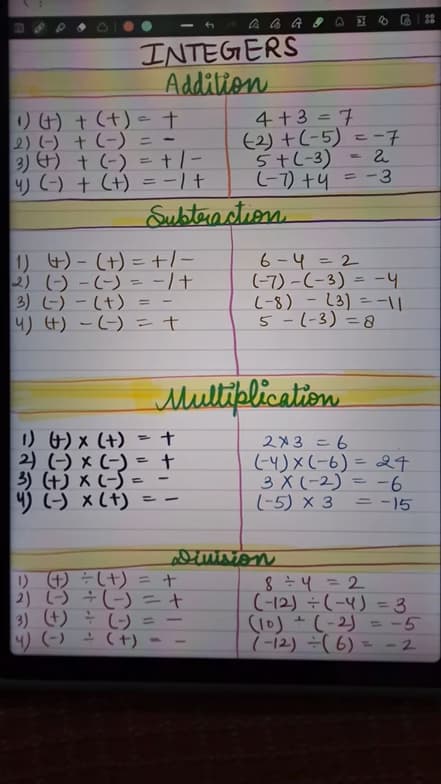 INTEGERS
Addition
1) (+) + (+) = +    4 + 3 = 7
2) (-) + (-) = -    (-2) + (-5) = -7
3) (+) + (-) = +/-    5 + (-3) = 2
4) (-) + (+) = -/+    (-7) + 4 = -3
Subtraction
1) (+) - (+) = +/-    6 - 4 = 2
2) (-) - (-) = -/+    (-7) - (-3) = -4
3) (-) - (+) = -    (-8) - (3) = -11
4) (+) - (-) = +    5 - (-3) = 8
Multiplication
1) (+) x (+) = +    2 x 3 = 6
2) (-) x (-) = +    (-4) x (-6) = 24
3) (+) x (-) = -    3 x (-2) = -6
4) (-) x (+) = -    (-5) x 3 = -15
Division
1) (+) ÷ (+) = +    8 ÷ 4 = 2
2) (-) ÷ (-) = +    (-12) ÷ (-4) = 3
3) (+) ÷ (-) = -    (10) ÷ (-2) = -5
4) (-) ÷ (+) = -    (-12) ÷ (6) = -2